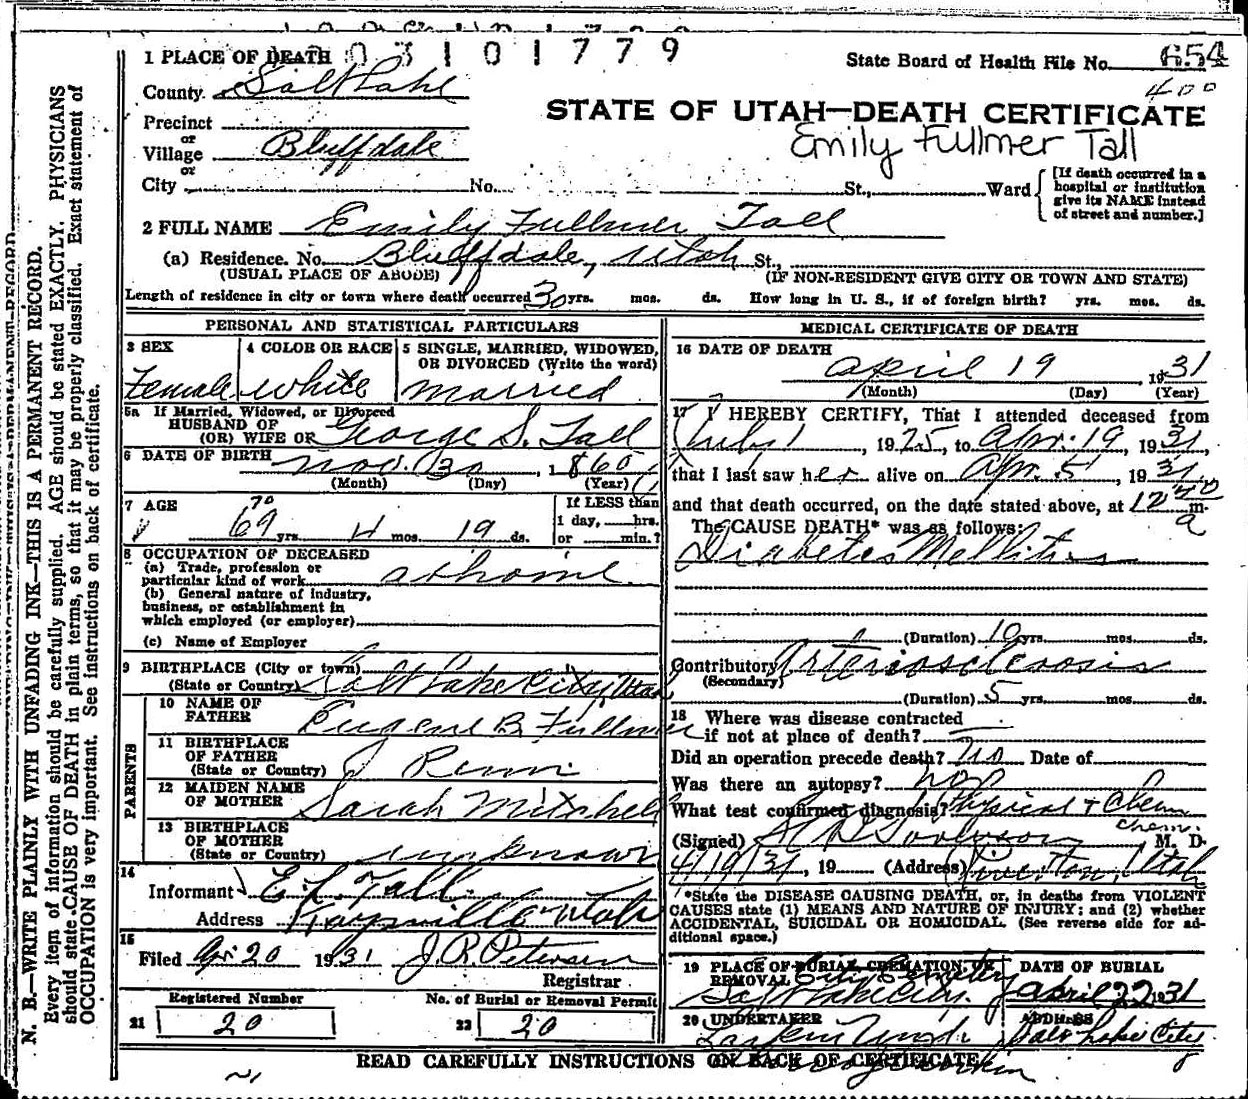 03101779
1 PLACE OF DEATH
State Board of Health File No. 654
400
County Salt Lake
STATE OF UTAH—DEATH CERTIFICATE
Emily Fullmer Tall
Precinct
or
Village Bluffdale
or
City No. St., Ward
[If death occurred in a hospital or institution give its NAME instead of street and number.]
2 FULL NAME Emily Fullmer Tall
(a) Residence. No. Bluffdale, Utah St.,
(USUAL PLACE OF ABODE) (IF NON-RESIDENT GIVE CITY OR TOWN AND STATE)
Length of residence in city or town where death occurred 30 yrs. mos. ds. How long in U. S., if of foreign birth? yrs. mos. ds.
PERSONAL AND STATISTICAL PARTICULARS
3 SEX
Female
4 COLOR OR RACE
white
5 SINGLE, MARRIED, WIDOWED,
OR DIVORCED (Write the word)
married
5a If Married, Widowed, or Divorced
HUSBAND OF
(OR) WIFE OF George S. Tall
6 DATE OF BIRTH Nov. 30, 1860
(Month) (Day) (Year)
7 AGE
70
69 yrs. 4 mos. 19 ds.
If LESS than
1 day, hrs.
or min.?
8 OCCUPATION OF DECEASED
(a) Trade, profession or
particular kind of work at home
(b) General nature of industry,
business, or establishment in
which employed (or employer)
(c) Name of Employer
9 BIRTHPLACE (City or town)
(State or Country) Salt Lake City, Utah
PARENTS
10 NAME OF
FATHER Eugene B. Fullmer
11 BIRTHPLACE
OF FATHER
(State or Country) Penn
12 MAIDEN NAME
OF MOTHER Sarah Mitchell
13 BIRTHPLACE
OF MOTHER
(State or Country) unknown
14
Informant E. L. Tall
Address Kaysville Utah
15
Filed Apr 20 1931 J. R. Petersen
Registrar
Registered Number
21 20
No. of Burial or Removal Permit
22 20
MEDICAL CERTIFICATE OF DEATH
16 DATE OF DEATH
April 19, 1931
(Month) (Day) (Year)
17 I HEREBY CERTIFY, That I attended deceased from
July 1, 1925, to Apr. 19, 1931,
that I last saw her alive on Apr. 5, 1931
and that death occurred, on the date stated above, at 12 40 m.
a
The CAUSE DEATH* was as follows:
Diabetes Mellitus
(Duration) 10 yrs. mos. ds.
Contributory Arteriosclerosis
(Secondary)
(Duration) 5 yrs. mos. ds.
18 Where was disease contracted
if not at place of death? —
Did an operation precede death? no Date of
Was there an autopsy? no
What test confirmed diagnosis? Physical + Chem
chem.
(Signed) M. D.
4/19/31, 19 (Address) Riverton, Utah
*State the DISEASE CAUSING DEATH, or, in deaths from VIOLENT
CAUSES state (1) MEANS AND NATURE OF INJURY; and (2) whether
ACCIDENTAL, SUICIDAL OR HOMICIDAL. (See reverse side for ad-
ditional space.)
19 PLACE OF BURIAL, CREMATION, OR
REMOVAL City Cemetery
Salt Lake City.
DATE OF BURIAL
April 22 1931
20 UNDERTAKER
Larkin Und.
ADDRESS
Salt Lake City
READ CAREFULLY INSTRUCTIONS ON BACK OF CERTIFICATE
N. B.—WRITE PLAINLY WITH UNFADING INK—THIS IS A PERMANENT RECORD.
Every item of information should be carefully supplied. AGE should be stated EXACTLY. PHYSICIANS
should state CAUSE OF DEATH in plain terms, so that it may be properly classified. Exact statement of
OCCUPATION is very important. See instructions on back of certificate.